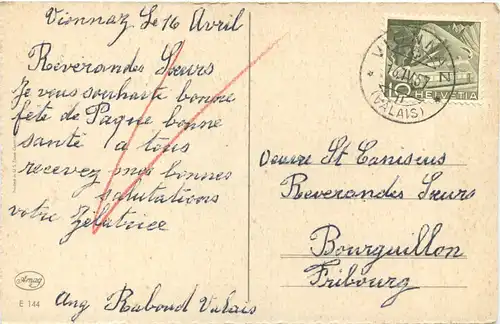 Vionnaz Le 16 Avril
Reverandes Sœurs
Je vous souhaite bonne
fête de Paque bonne
santé a tous
recevez mes bonnes
salutations
votre Zélatrice
Ang Raboud Valais
Amag
E 144
VIONNAZ
(VALAIS)
10 HELVETIA
Oeuvre St Canisius
Reverandes Sœurs
Bourguillon
Fribourg